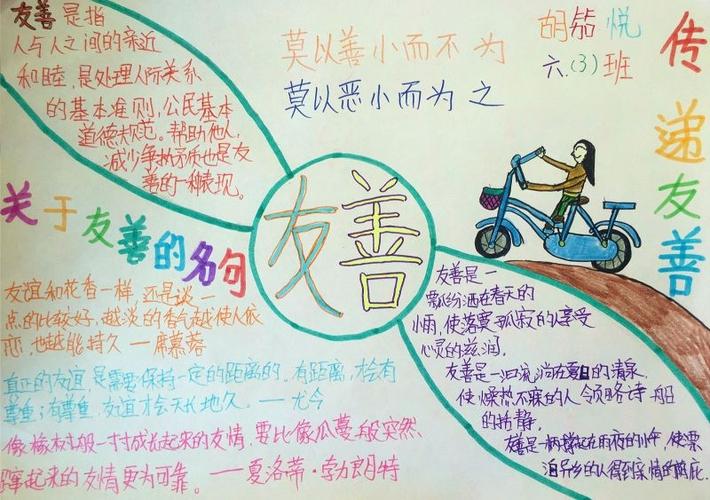 友善是指
人与人之间的亲近
和睦,是处理人际关系
的基本准则,公民基本
道德规范。帮助他人,
减少争执矛盾也是友
善的一种表现。
莫以善小而不为
莫以恶小而为之
胡 悦
六.(3)班
传递友善
友善
关于友善的名句
友谊和花香一样,还是淡一
点的比较好,越淡的香气越使人依
恋,也越能持久—席慕蓉
真正的友谊是需要保持一定的距离的。有距离,才会有
尊重;有尊重,友谊才会天长地久。——尤今
像橡树般一寸寸成长起来的友情,要比像瓜蔓般突然
蹿起来的友情更为可靠。——夏洛蒂·勃朗特
友善是一
飘纷洒在春天的
小雨,使落寞孤寂的人享受
心灵的滋润。
友善是一汩流淌在夏日的清泉,
使燥热不寐的人领略诗般
的恬静。
友善是一柄撑起在雨夜的小伞,使漂
泊异乡的人得到亲情的荫庇。